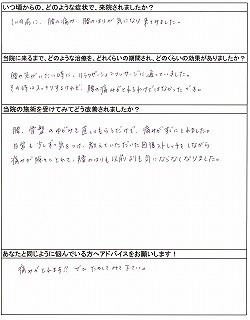 いつ頃からの、どのような症状で、来院されましたか？
1ヶ月前に、腰の痛みと腰のはりが気になり来ました。
当院に来るまで、どのような治療を、どれくらいの期間され、どのくらいの効果がありましたか？
腰の気になった時に、リラクゼーションマッサージに通っていました。
その時はスッキリするけれど、腰の痛みがとれるわけではなかったです。
当院の施術を受けてみてどう改善されましたか？
腰、骨盤のゆがみを直してもらうだけで、痛みがすぐにとれました。
日常も少し気をつけ、教えていただいた自宅ストレッチをしながら
痛みが随分とれて、腰のはりも以前よりも気にならなくなりました。
あなたと同じように悩んでいる方へアドバイスをお願いします！
痛みがとれます!! ぜひためしてみて下さい。